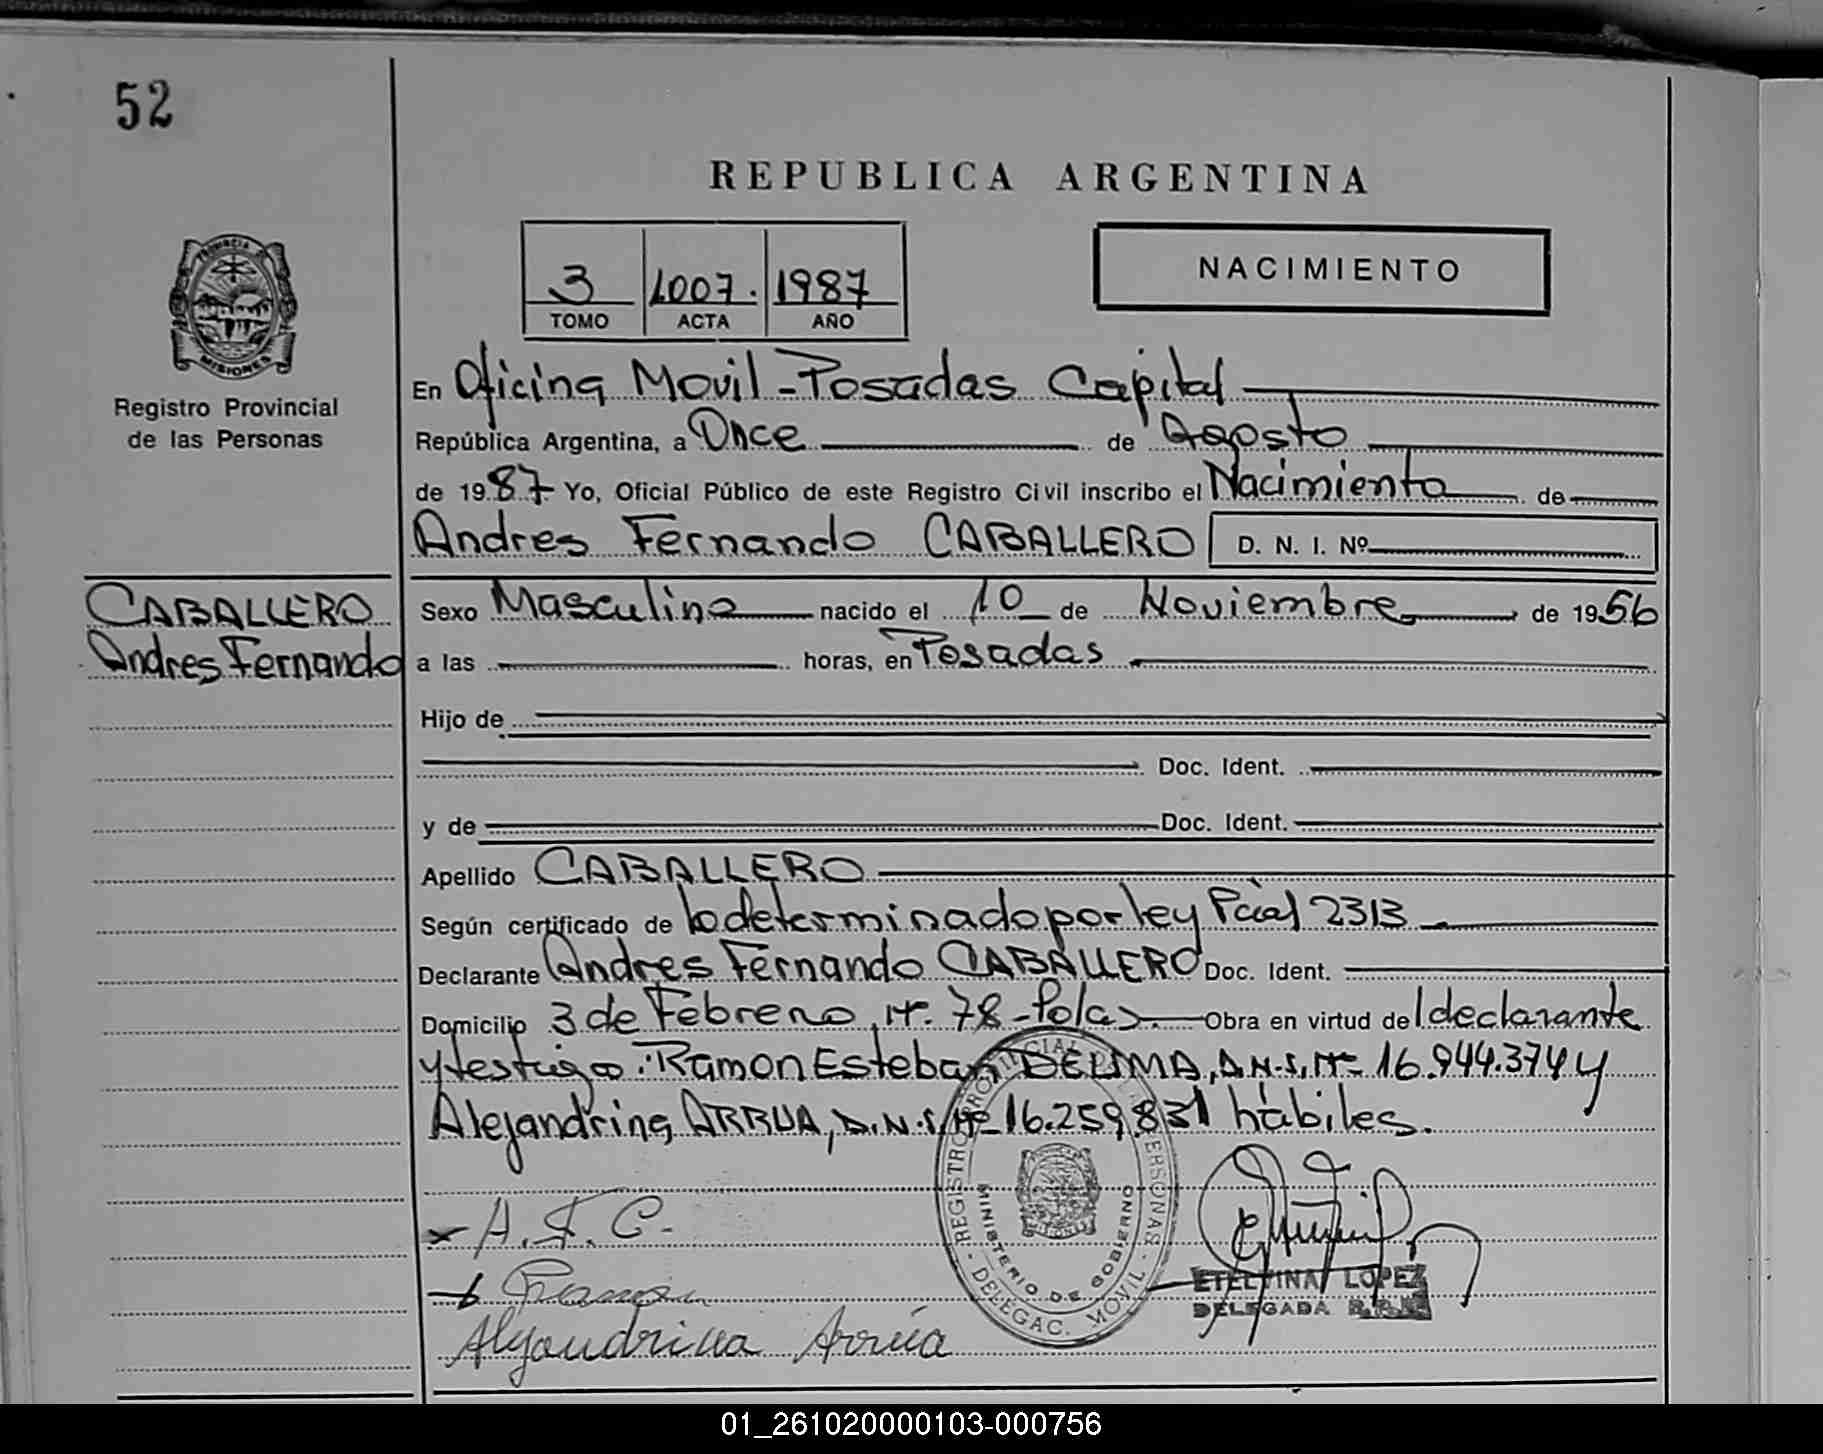 52
REPUBLICA ARGENTINA
PROVINCIA DE MISIONES
Registro Provincial
de las Personas
3 1007. 1987
TOMO ACTA AÑO
NACIMIENTO
En Oficina Movil - Posadas Capital
República Argentina, a Once de Agosto
de 1987 Yo, Oficial Público de este Registro Civil inscribo el Nacimiento de
Andres Fernando CABALLERO D. N. I. Nº
CABALLERO
Andres Fernando
Sexo Masculino nacido el 10 de Noviembre de 1956
a las horas, en Posadas
Hijo de
Doc. Ident.
y de Doc. Ident.
Apellido CABALLERO
Según certificado de lo determinado por ley Pcial 2313
Declarante Andres Fernando CABALLERO Doc. Ident.
Domicilio 3 de Febrero, Nº 78 - Pdas. Obra en virtud del declarante
y testigo: Ramon Esteban DELIMA, D.N.I. Nº 16.944.374 y
Alejandrina ARRUA, D.N.I. Nº 16.259.831 hábiles.
A. F. C.
Ramon
Alejandrina Arrúa
REGISTRO PROVINCIAL DE LAS PERSONAS - DELEGAC. MOVIL -
MINISTERIO DE GOBIERNO
ETELVINA LOPEZ
DELEGADA
01_261020000103-000756